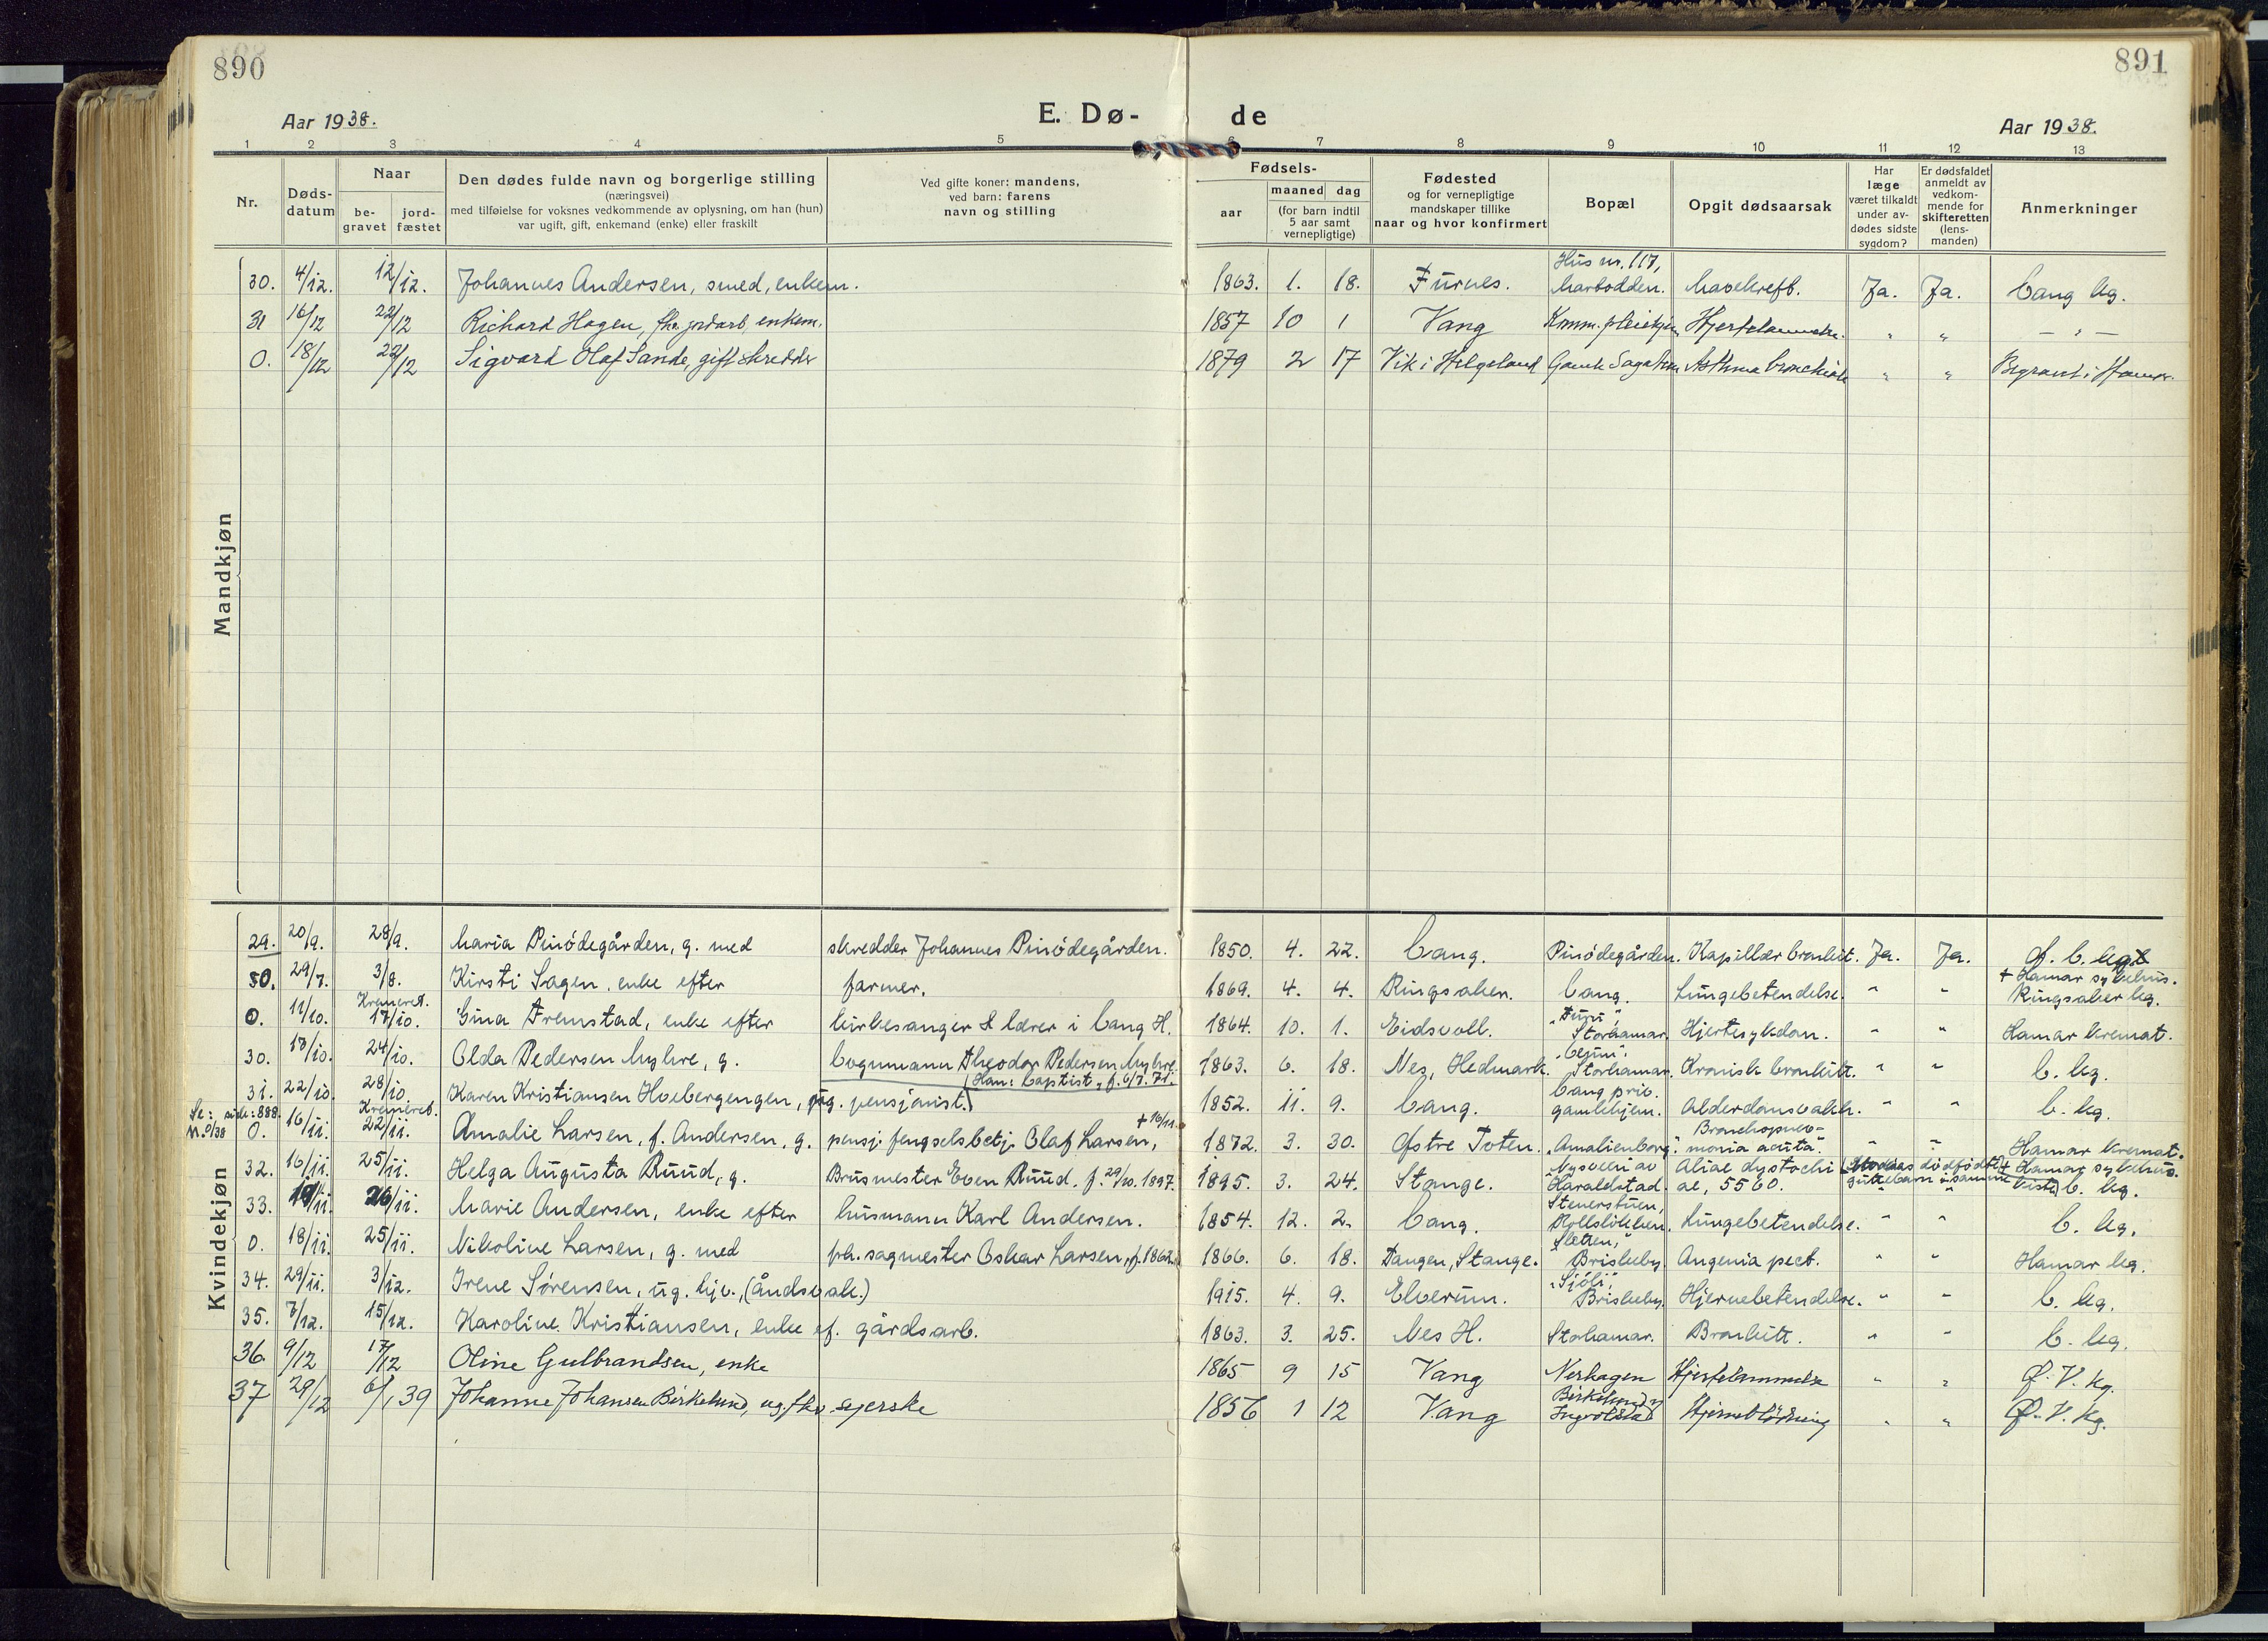 890
891
Aar 1938.
E. Dø-
de
Aar 1938.
1 2 3 4 5 7 8 9 10 11 12 13
Nr.
Døds-
datum
Naar
be-
gravet
jord-
fæstet
Den dødes fulde navn og borgerlige stilling
(næringsvei)
med tilføielse for voksnes vedkommende av oplysning, om han (hun)
var ugift, gift, enkemand (enke) eller fraskilt
Ved gifte koner: mandens,
ved barn: farens
navn og stilling
Fødsels-
aar
maaned dag
(for barn indtil
5 aar samt
vernepligtige)
Fødested
og for vernepligtige
mandskaper tillike
naar og hvor konfirmert
Bopæl
Opgit dødsaarsak
Har
læge
været tilkaldt
under av-
dødes sidste
sygdom?
Er dødsfaldet
anmeldt av
vedkom-
mende for
skifteretten
(lens-
manden)
Anmerkninger
Mandkjøn
Hus nr. 117,
30. 4/12. 12/12. Johannes Andersen, smed, enkem. 1863. 1. 18. Furnes. Ja. Ja. Vang kg.
31 16/12 22/12 Richard Hagen, fhv. jordarb, enkem. 1857 10 1 Vang Komm. pleiehjem Hjertelammelse. " " — " —
0. 18/12 22/12 Sigvard Olaf Sande, gift skredder 1879 2 17 Vik i Helgeland Asthma bronchiale " " Begravet i Hamar.
Kvindekjøn
29. 20/9. 28/9. Maria Pinödegården, g. med skredder Johannes Pinödegården. 1850. 4. 22. Vang. Pinödegården. Kapillær bronkit. Ja. Ja.
+ Hamar sykehus.
30. 29/7. 3/8. Kirsti Sagen, enke efter farmer. 1869. 4. 4. Ringsaker. Vang. Lungebetendelse. " " Ringsaker kg.
Kremeret.
0. 11/10. 17/10. Gina Fremstad, enke efter kirkesanger & lærer i Vang H. 1864. 10. 1. Eidsvoll. Storhamar. Hjertesykdom. " " Hamar kremat.
30. 18/10. 24/10. Olda Pedersen Myhre, g. vognmann Theodor Pedersen Myhre. 1863. 6. 18. Nes, Hedmark. Storhamar. Kronisk bronkitt. " " V. kg.
(Han: baptist, f. 6/7. 71.)
Vang priv.
31. 22/10. 28/10. Karen Kristiansen Hoebergengen, ug. pensjonist. 1852. 11. 9. Vang. gamlehjem. Alderdomssvakh. " " V. kg.
Se: side: 888. Kremeret. + 10/11. Bronchopneu-
n. 0/38 0. 16/11. 22/11. Amalie Larsen, f. Andersen, g. pensj. fengselsbetj. Olaf Larsen, 1872. 3. 30. Østre Toten. "Amalienborg." monia acuta. " " Hamar kremat.
32. 16/11. 25/11. Helga Augusta Ruud, g. Brusmester Even Ruud. f. 29/10. 1897. 1895. 3. 24. Stange. Haraldstad. ae, 5560. V. kg.
Stenerstuen,
33. 19/11. 26/11. Marie Andersen, enke efter husmann Karl Andersen. 1854. 12. 2. Vang. Lungebetendelse. " " V. kg.
"Sletten,"
0. 18/11. 25/11. Nikoline Larsen, g. med fhv. sagmester Oskar Larsen, f. 1862. 1866. 6. 18. Tangen, Stange. Briskeby Angenia pect. " " Hamar kg.
"Sjöli",
34. 29/11. 3/12. Irene Sørensen, ug. hjv., (åndsvak.) 1915. 4. 9. Elverum. Briskeby. Hjernebetendelse. " " V. kg.
35. 7/12. 15/12. Karoline Kristiansen, enke ef. gårdsarb. 1863. 3. 25. Nes H. Storhamar. Bronkitt. " " V. kg.
36 9/12 17/12 Oline Gulbrandsen, enke 1865 9 15 Vang Nerhagen Hjertelammelse " " Ø. V. kg.
Birkelund
37 29/12 6/1 39 Johanne Johansen Birkelund, ug. fhv. syerske 1856 1 12 Vang Ingvoldstad Hjerneblödning " " Ø. V. kg.